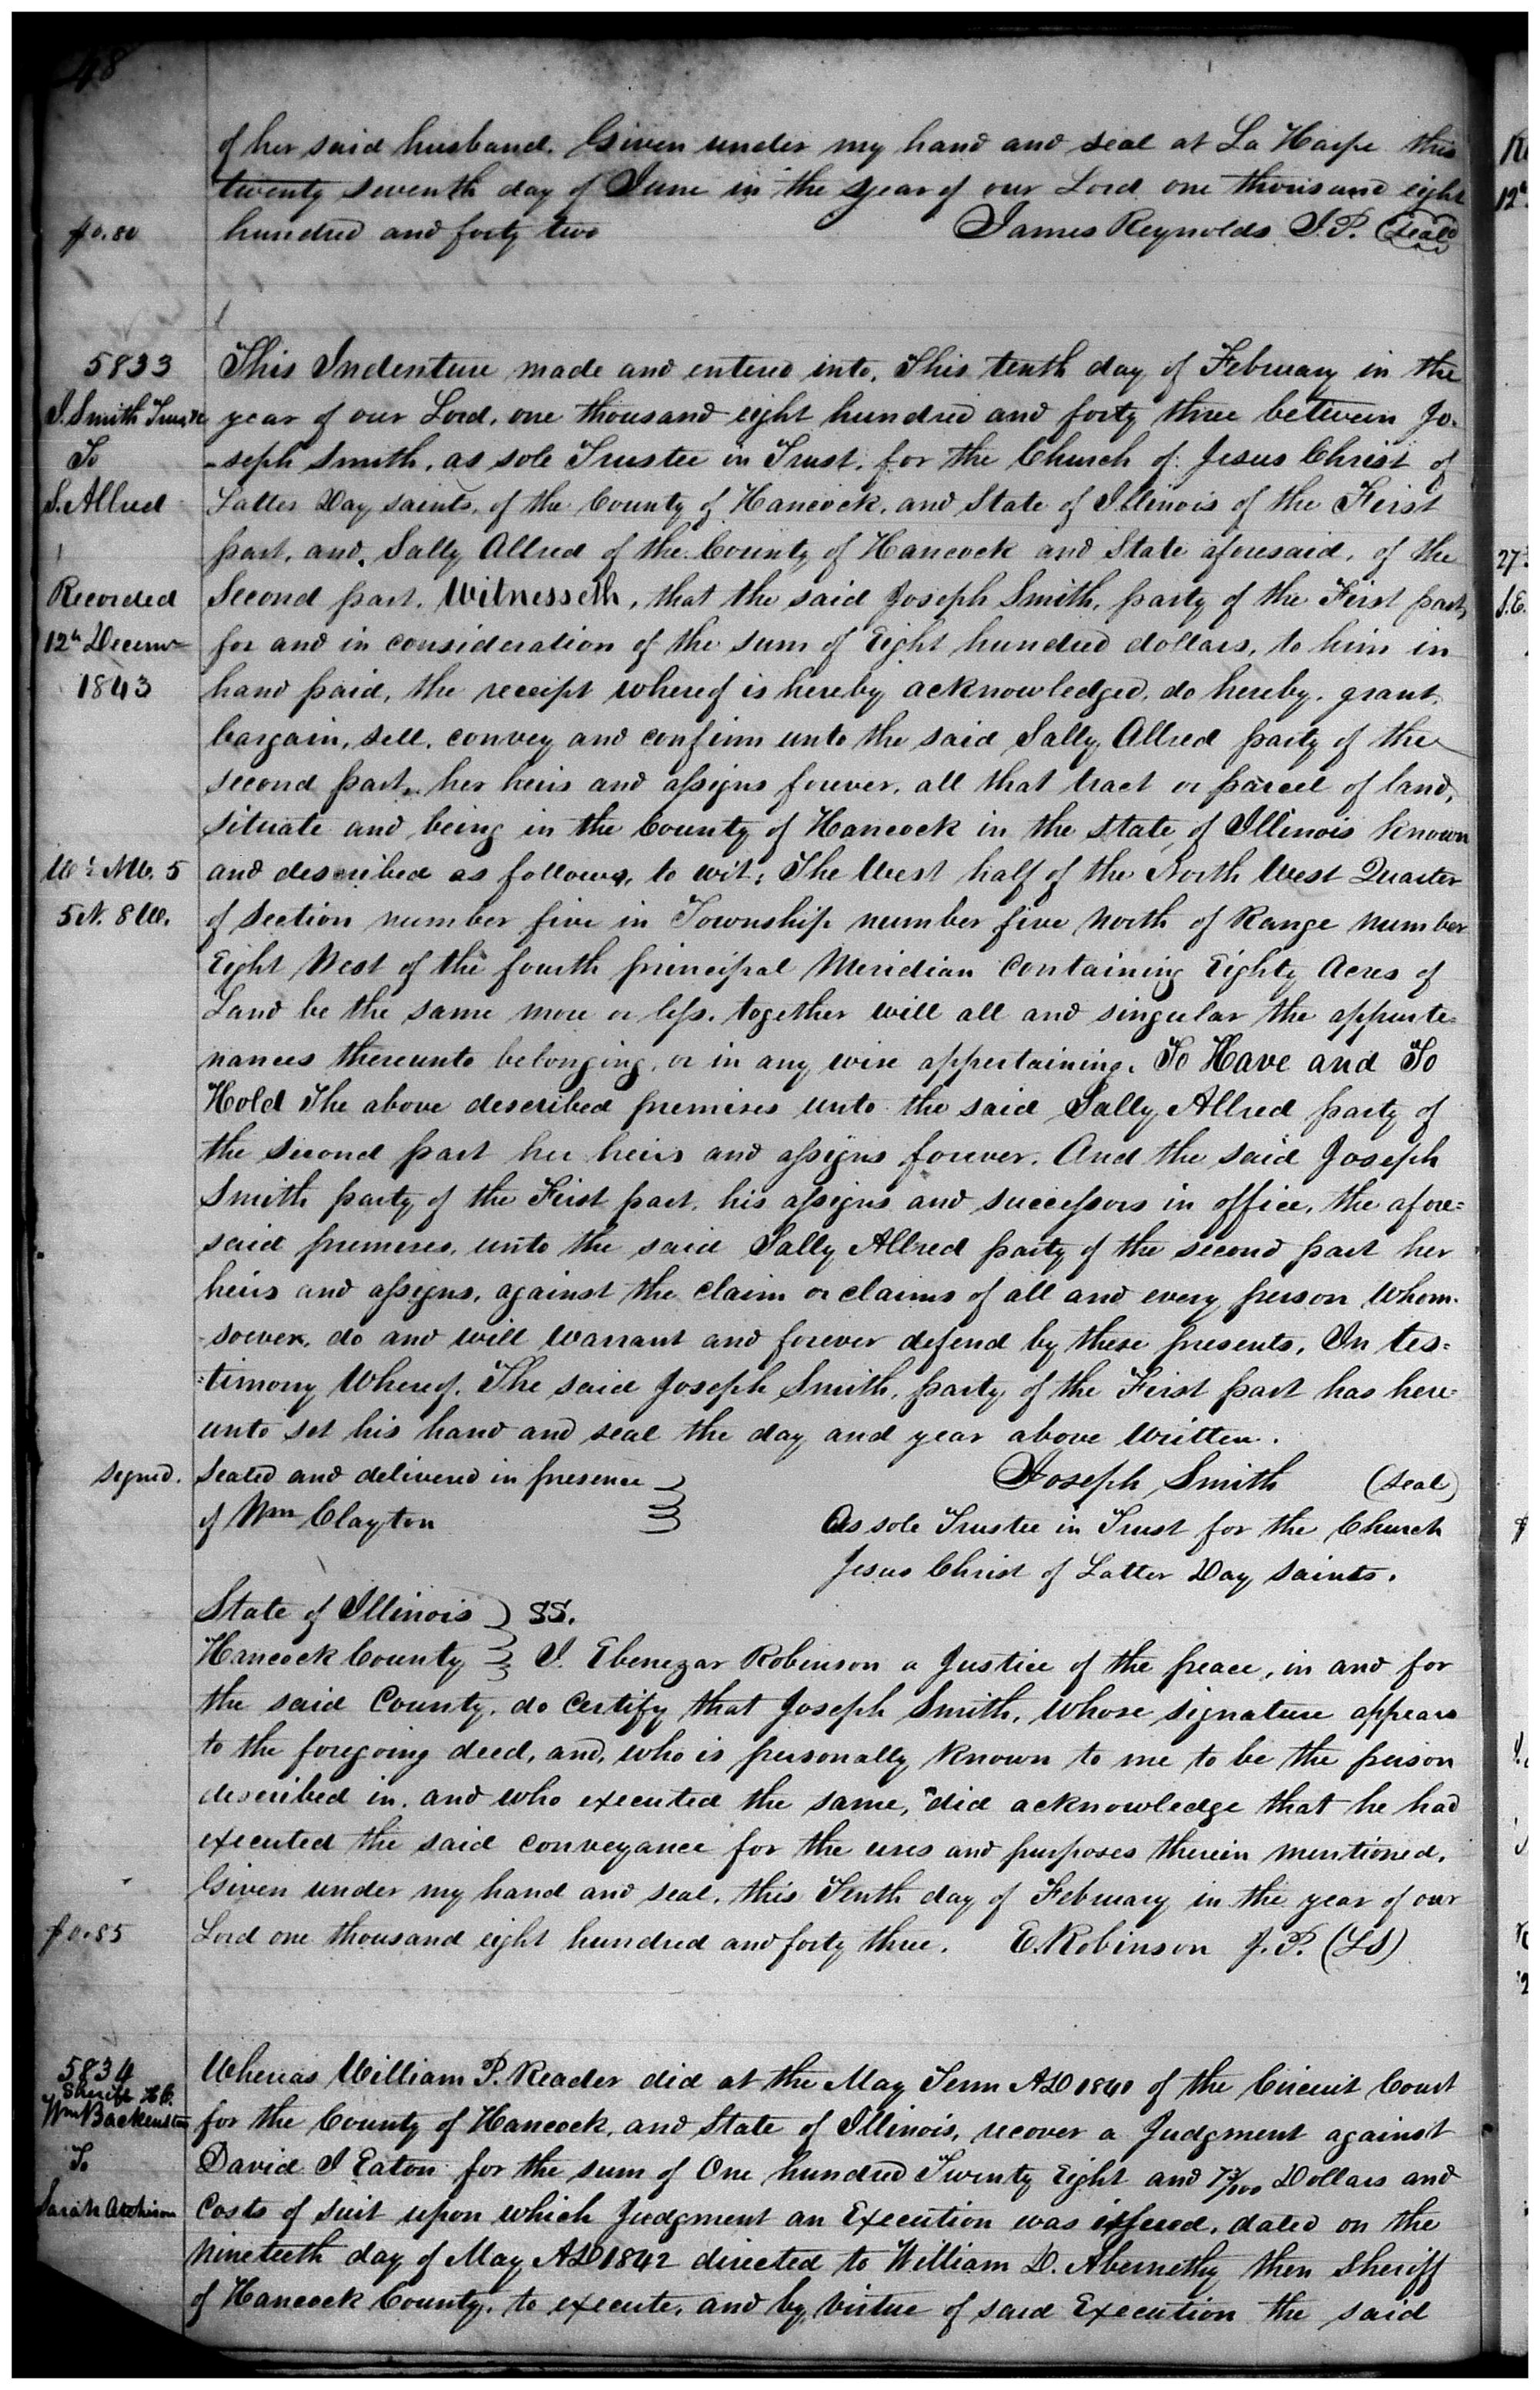 48
of her said husband. Given under my hand and seal at La Harpe this
twenty seventh day of June in the year of our Lord one thousand eight
$0.80 hundred and forty two James Reynolds J.P. (seal)
5833 This Indenture made and entered into, This tenth day of February in the
J. Smith Trustee year of our Lord, one thousand eight hundred and forty three between Jo-
To -seph Smith, as sole Trustee in Trust, for the Church of Jesus Christ of
S. Allred Latter Day saints, of the County of Hancock, and State of Illinois of the First
part, and, Sally Allred of the County of Hancock and State aforesaid, of the
Recorded Second part, Witnesseth, that the said Joseph Smith, party of the First part,
12th Decemr for and in consideration of the sum of Eight hundred dollars, to him in
1843 hand paid, the receipt whereof is hereby acknowledged, do hereby, grant,
bargain, sell, convey and confirm unto the said Sally Allred party of the
second part, her heirs and assigns forever, all that tract or parcel of land,
situate and being in the County of Hancock in the State of Illinois known
W½ NW. 5 and described as follows, to wit; The West half of the North West Quarter
5 N. 8 W. of section number five in Township number five North of Range number
Eight West of the fourth principal Meridian Containing Eighty Acres of
Land be the same more or less, together will all and singular the appurte=
nances thereunto belonging, or in any wise appertaining. To Have and To
Hold The above described premises unto the said Sally Allred party of
the second part her heirs and assigns forever. And the said Joseph
Smith party of the First part, his assigns and successors in office, the afore=
said premises, unto the said Sally Allred party of the second part her
heirs and assigns, against the claim or claims of all and every person Whom-
soever, do and will Warrant and forever defend by these presents, In tes=
=timony Whereof, The said Joseph Smith, party of the First part has here=
unto set his hand and seal the day and year above Written.
Signed. Sealed and delivered in presence Joseph Smith (seal)
of Wm Clayton As sole Trustee in Trust for the Church
Jesus Christ of Latter Day Saints.
State of Illinois SS.
Hancock County I. Ebenezar Robinson a Justice of the peace, in and for
the said County, do Certify that Joseph Smith, Whose signature appears
to the foregoing deed, and, who is personally Known to me to be the person
described in, and who executed the same, did acknowledge that he had
executed the said Conveyance for the uses and purposes therein mentioned.
Given under my hand and seal, this Tenth day of February in the year of our
$0.85 Lord one thousand eight hundred and forty three. E. Robinson J.P. (LS)
5834 Whereas William P. Reader did at the May Term AD 1840 of the Circuit Court
Sheriff H.C.
Wm Backenstos for the County of Hancock, and State of Illinois, recover a Judgment against
To David I Eaton for the sum of One hundred Twenty Eight and 73/100 Dollars and
Sarah Atchison Costs of suit upon which Judgment an Execution was issued, dated on the
Nineteeth day of May AD 1842 directed to William D. Abernethy then Sheriff
of Hancock County, to execute, and by Virtue of said Execution the said